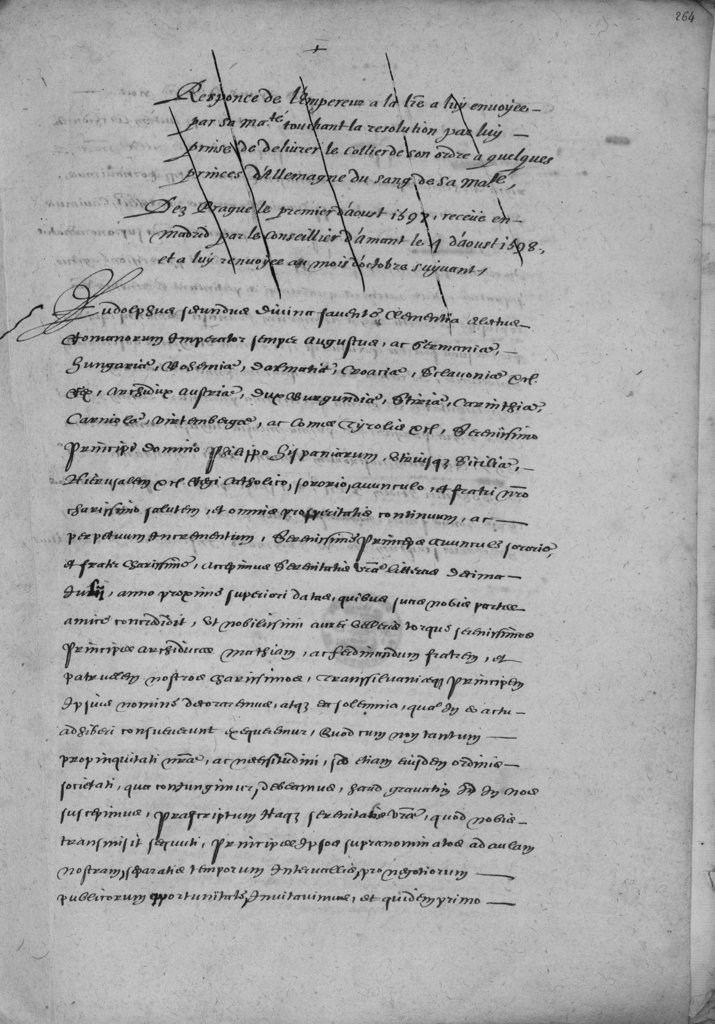 264
+
Responce de l'Empereur a la lre a luy envoyee
par sa ma.té touchant la resolution par luy
prinse de delivrer le Collier de son ordre a quelques
princes d'Allemagne du sang de sa ma.té,
Dez Prague le premier d'aoust 1597, receue en
madrid par le Conseillier d'amant le 4 d'aoust 1598,
et a luy renvoyee au mois d'octobre suyvant,
Rudolphus secundus divina favente Clementia electus
Romanorum Imperator semper Augustus, ac Germaniæ,
Hungariæ, Bohemiæ, Dalmatiæ, Croaciæ, Sclavoniæ etc.
Rex, Archidux Austriæ, Dux Burgundiæ, Stiriæ, Carinthiæ,
Carniolæ, Wirtembergæ, ac Comes Tyrolis etc., Serenissimo
Principi domino Philippo Hispaniarum, Utriusq; Siciliæ,
Hierusalem etc. Regi Catholico, sororio, avunculo, et fratri nro
charissimo salutem, et omnis prosperitatis continuum, ac
perpetuum Incrementum, Serenissime Princeps Avuncule sororie,
et frater charissime, Accepimus Serenitatis vræ litteras decima
Julij, anno proximè superiori datas, quibus suas nobis partes
amicè concredidit, Ut nobilissimi aurei Velleris torques serenissimos
Principes Archiducas Mathiam, ac Ferdinandum fratrem, et
patruelem nostros charissimos, Transsilvaniæq; Principem
Ipsius nomine decoraremus, atq; ea solemnia, quæ In eo actu
adhiberi consueverunt exequeremur, Quod cum non tantum
propinquitati nræ, ac necessitudini, sed etiam eiusdem ordinis
societati, qua coniungimur, debeamus, haud gravatim id In nos
suscepimus, Præscriptum Itaq; serenitatis Vræ, quod nobis
transmisit sequuti, Principes Ipsos supranominatos ad aulam
nostram, separatis temporum Intervallis, pro negotiorum
publicorum opportunitate, Invitavimus, et quidem primo